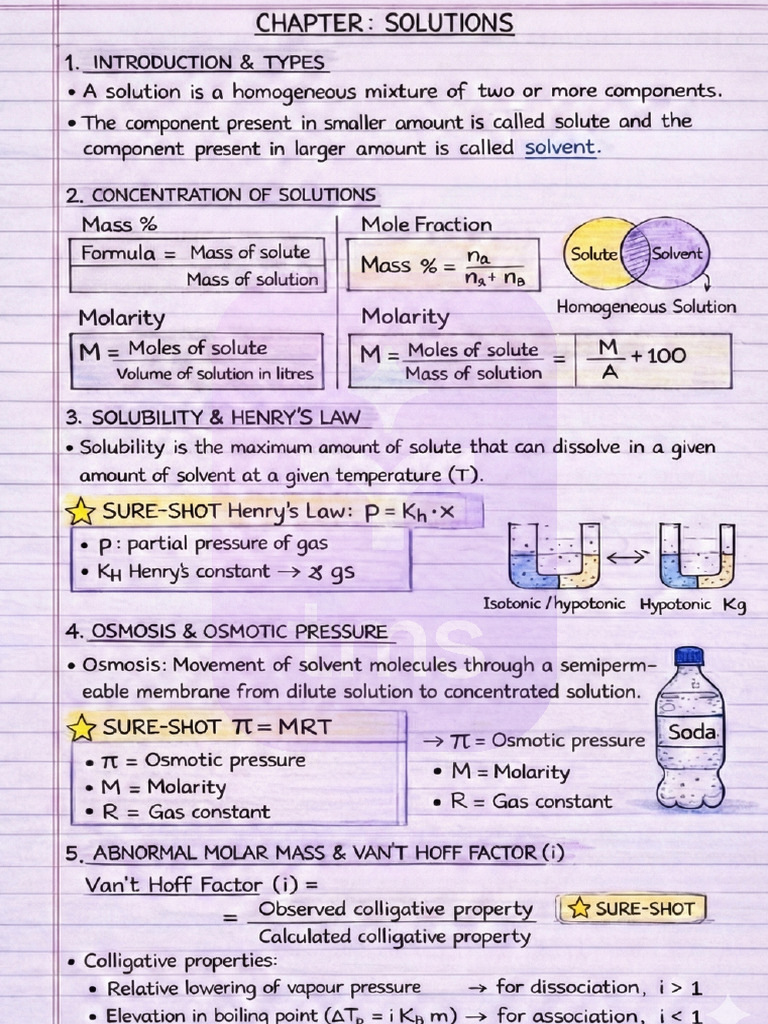 CHAPTER: SOLUTIONS
1. INTRODUCTION & TYPES
• A solution is a homogeneous mixture of two or more components.
• The component present in smaller amount is called solute and the
component present in larger amount is called solvent.
2. CONCENTRATION OF SOLUTIONS
Mass %
Formula = Mass of solute
Mass of solution
Mole Fraction
Mass % = na
na + nB
Solute
Solvent
Homogeneous Solution
Molarity
M = Moles of solute
Volume of solution in litres
Molarity
M = Moles of solute = M + 100
Mass of solution A
3. SOLUBILITY & HENRY'S LAW
• Solubility is the maximum amount of solute that can dissolve in a given
amount of solvent at a given temperature (T).
SURE-SHOT Henry's Law: p = Kh · x
• p : partial pressure of gas
• KH Henry's constant → gs
Isotonic / hypotonic
Hypotonic Kg
4. OSMOSIS & OSMOTIC PRESSURE
• Osmosis: Movement of solvent molecules through a semiperm-
eable membrane from dilute solution to concentrated solution.
SURE-SHOT π = MRT
• π = Osmotic pressure
• M = Molarity
• R = Gas constant
→ π = Osmotic pressure
• M = Molarity
• R = Gas constant
Soda
tms
5. ABNORMAL MOLAR MASS & VAN'T HOFF FACTOR (i)
Van't Hoff Factor (i) =
= Observed colligative property
Calculated colligative property
SURE-SHOT
• Colligative properties:
• Relative lowering of vapour pressure → for dissociation, i > 1
• Elevation in boiling point (ΔTb = i Kb m) → for association, i < 1